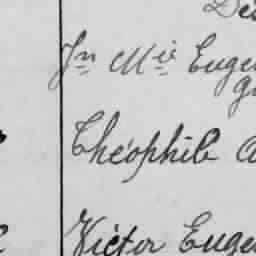 Jn Mie Euge
Théophile
Victor Euge